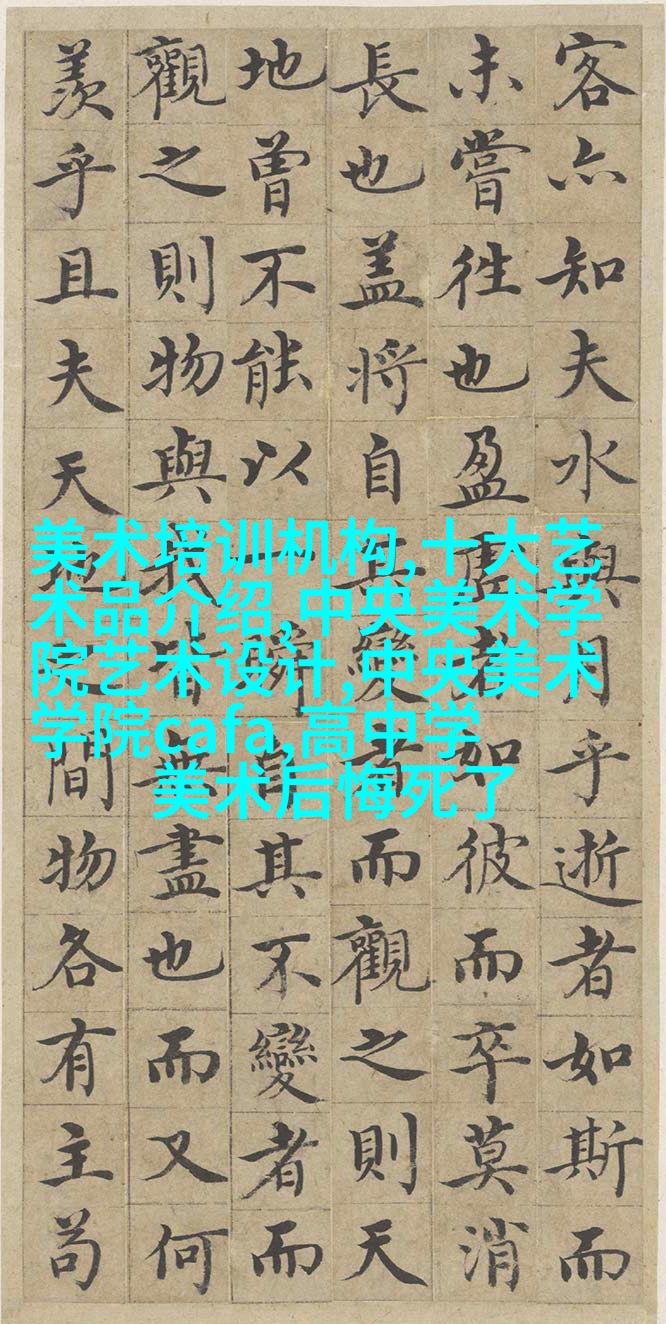 客亦知夫水與月乎逝者如斯而
未嘗往也盈虛者如彼而卒莫消
長也盖將自其變者而觀之則天
地曾不能以一瞬自其不變者而
觀之則物與我皆無盡也而又何
羨乎且夫天地之間物各有主苟
美术培训机构,十大艺
术品介绍,中央美术学
院艺术设计,中央美术
学院cafa,高中学
美术后悔死了